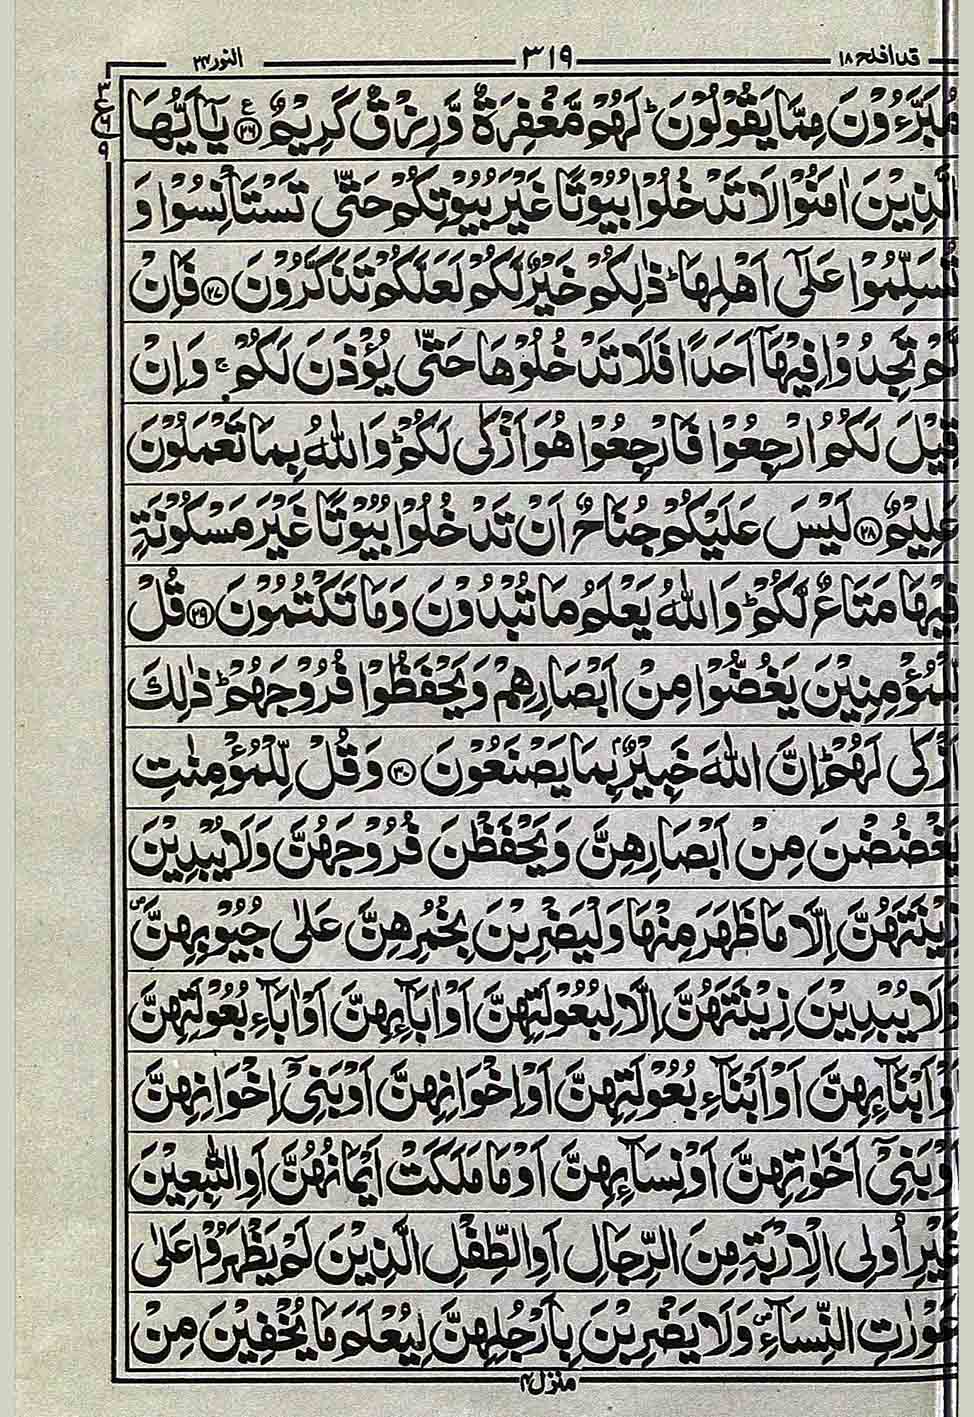 قد افلح ١٨ ٣١٩ النور ٢٤
مُبَرَّءُوْنَ مِمَّا يَقُوْلُوْنَ ؕ لَهُمْ مَّغْفِرَةٌ وَّرِزْقٌ كَرِيْمٌ ﴿۲۶﴾ يٰۤاَيُّهَا
الَّذِيْنَ اٰمَنُوْا لَا تَدْخُلُوْا بُيُوْتًا غَيْرَ بُيُوْتِكُمْ حَتّٰى تَسْتَاْنِسُوْا وَ
تُسَلِّمُوْا عَلٰۤى اَهْلِهَا ؕ ذٰلِكُمْ خَيْرٌ لَّكُمْ لَعَلَّكُمْ تَذَكَّرُوْنَ ﴿۲۷﴾ فَاِنْ
لَّمْ تَجِدُوْا فِيْهَاۤ اَحَدًا فَلَا تَدْخُلُوْهَا حَتّٰى يُؤْذَنَ لَكُمْ ۚ وَاِنْ
قِيْلَ لَكُمُ ارْجِعُوْا فَارْجِعُوْا هُوَ اَزْكٰى لَكُمْ ؕ وَاللّٰهُ بِمَا تَعْمَلُوْنَ
عَلِيْمٌ ﴿۲۸﴾ لَيْسَ عَلَيْكُمْ جُنَاحٌ اَنْ تَدْخُلُوْا بُيُوْتًا غَيْرَ مَسْكُوْنَةٍ
فِيْهَا مَتَاعٌ لَّكُمْ ؕ وَاللّٰهُ يَعْلَمُ مَا تُبْدُوْنَ وَمَا تَكْتُمُوْنَ ﴿۲۹﴾ قُلْ
لِّلْمُؤْمِنِيْنَ يَغُضُّوْا مِنْ اَبْصَارِهِمْ وَيَحْفَظُوْا فُرُوْجَهُمْ ؕ ذٰلِكَ
اَزْكٰى لَهُمْ ؕ اِنَّ اللّٰهَ خَبِيْرٌۢ بِمَا يَصْنَعُوْنَ ﴿۳۰﴾ وَقُلْ لِّلْمُؤْمِنٰتِ
يَغْضُضْنَ مِنْ اَبْصَارِهِنَّ وَيَحْفَظْنَ فُرُوْجَهُنَّ وَلَا يُبْدِيْنَ
زِيْنَتَهُنَّ اِلَّا مَا ظَهَرَ مِنْهَا وَلْيَضْرِبْنَ بِخُمُرِهِنَّ عَلٰى جُيُوْبِهِنَّ ۪
وَلَا يُبْدِيْنَ زِيْنَتَهُنَّ اِلَّا لِبُعُوْلَتِهِنَّ اَوْ اٰبَآىِٕهِنَّ اَوْ اٰبَآءِ بُعُوْلَتِهِنَّ
اَوْ اَبْنَآىِٕهِنَّ اَوْ اَبْنَآءِ بُعُوْلَتِهِنَّ اَوْ اِخْوَانِهِنَّ اَوْ بَنِيْۤ اِخْوَانِهِنَّ
اَوْ بَنِيْۤ اَخَوٰتِهِنَّ اَوْ نِسَآىِٕهِنَّ اَوْ مَا مَلَكَتْ اَيْمَانُهُنَّ اَوِ التّٰبِعِيْنَ
غَيْرِ اُولِي الْاِرْبَةِ مِنَ الرِّجَالِ اَوِ الطِّفْلِ الَّذِيْنَ لَمْ يَظْهَرُوْا عَلٰى
عَوْرٰتِ النِّسَآءِ ۪ وَلَا يَضْرِبْنَ بِاَرْجُلِهِنَّ لِيُعْلَمَ مَا يُخْفِيْنَ مِنْ
منزل ۴